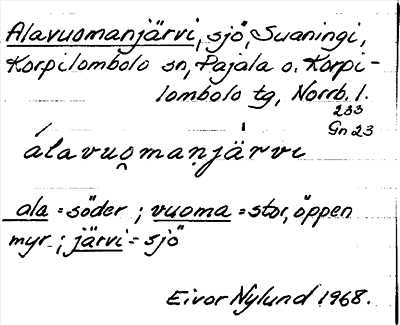 Alavuomanjärvi, sjö, Suaningi,
Korpilombolo sn, Pajala o. Korpi-
lombolo tg, Norrb. l.
233
Gn 23
álavuo̯maṇjä́rvi
ala = söder ; vuoma = stor, öppen
myr ; järvi = sjö
Eivor Nylund 1968.